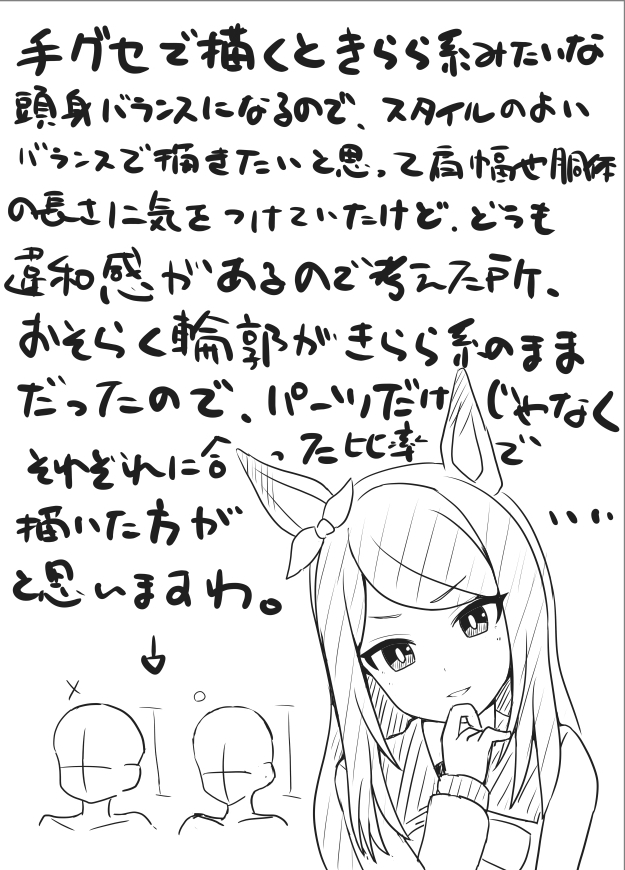 手グセで描くときらら系みたいな
頭身バランスになるので、スタイルのよい
バランスで描きたいと思って肩幅や胴体
の長さに気をつけていたけど、どうも
違和感があるので考えた所、
おそらく輪郭がきらら系のまま
だったので、パーツだけじゃなく
それぞれに合った比率で
描いた方が…
と思いますわ。
↓
× ○